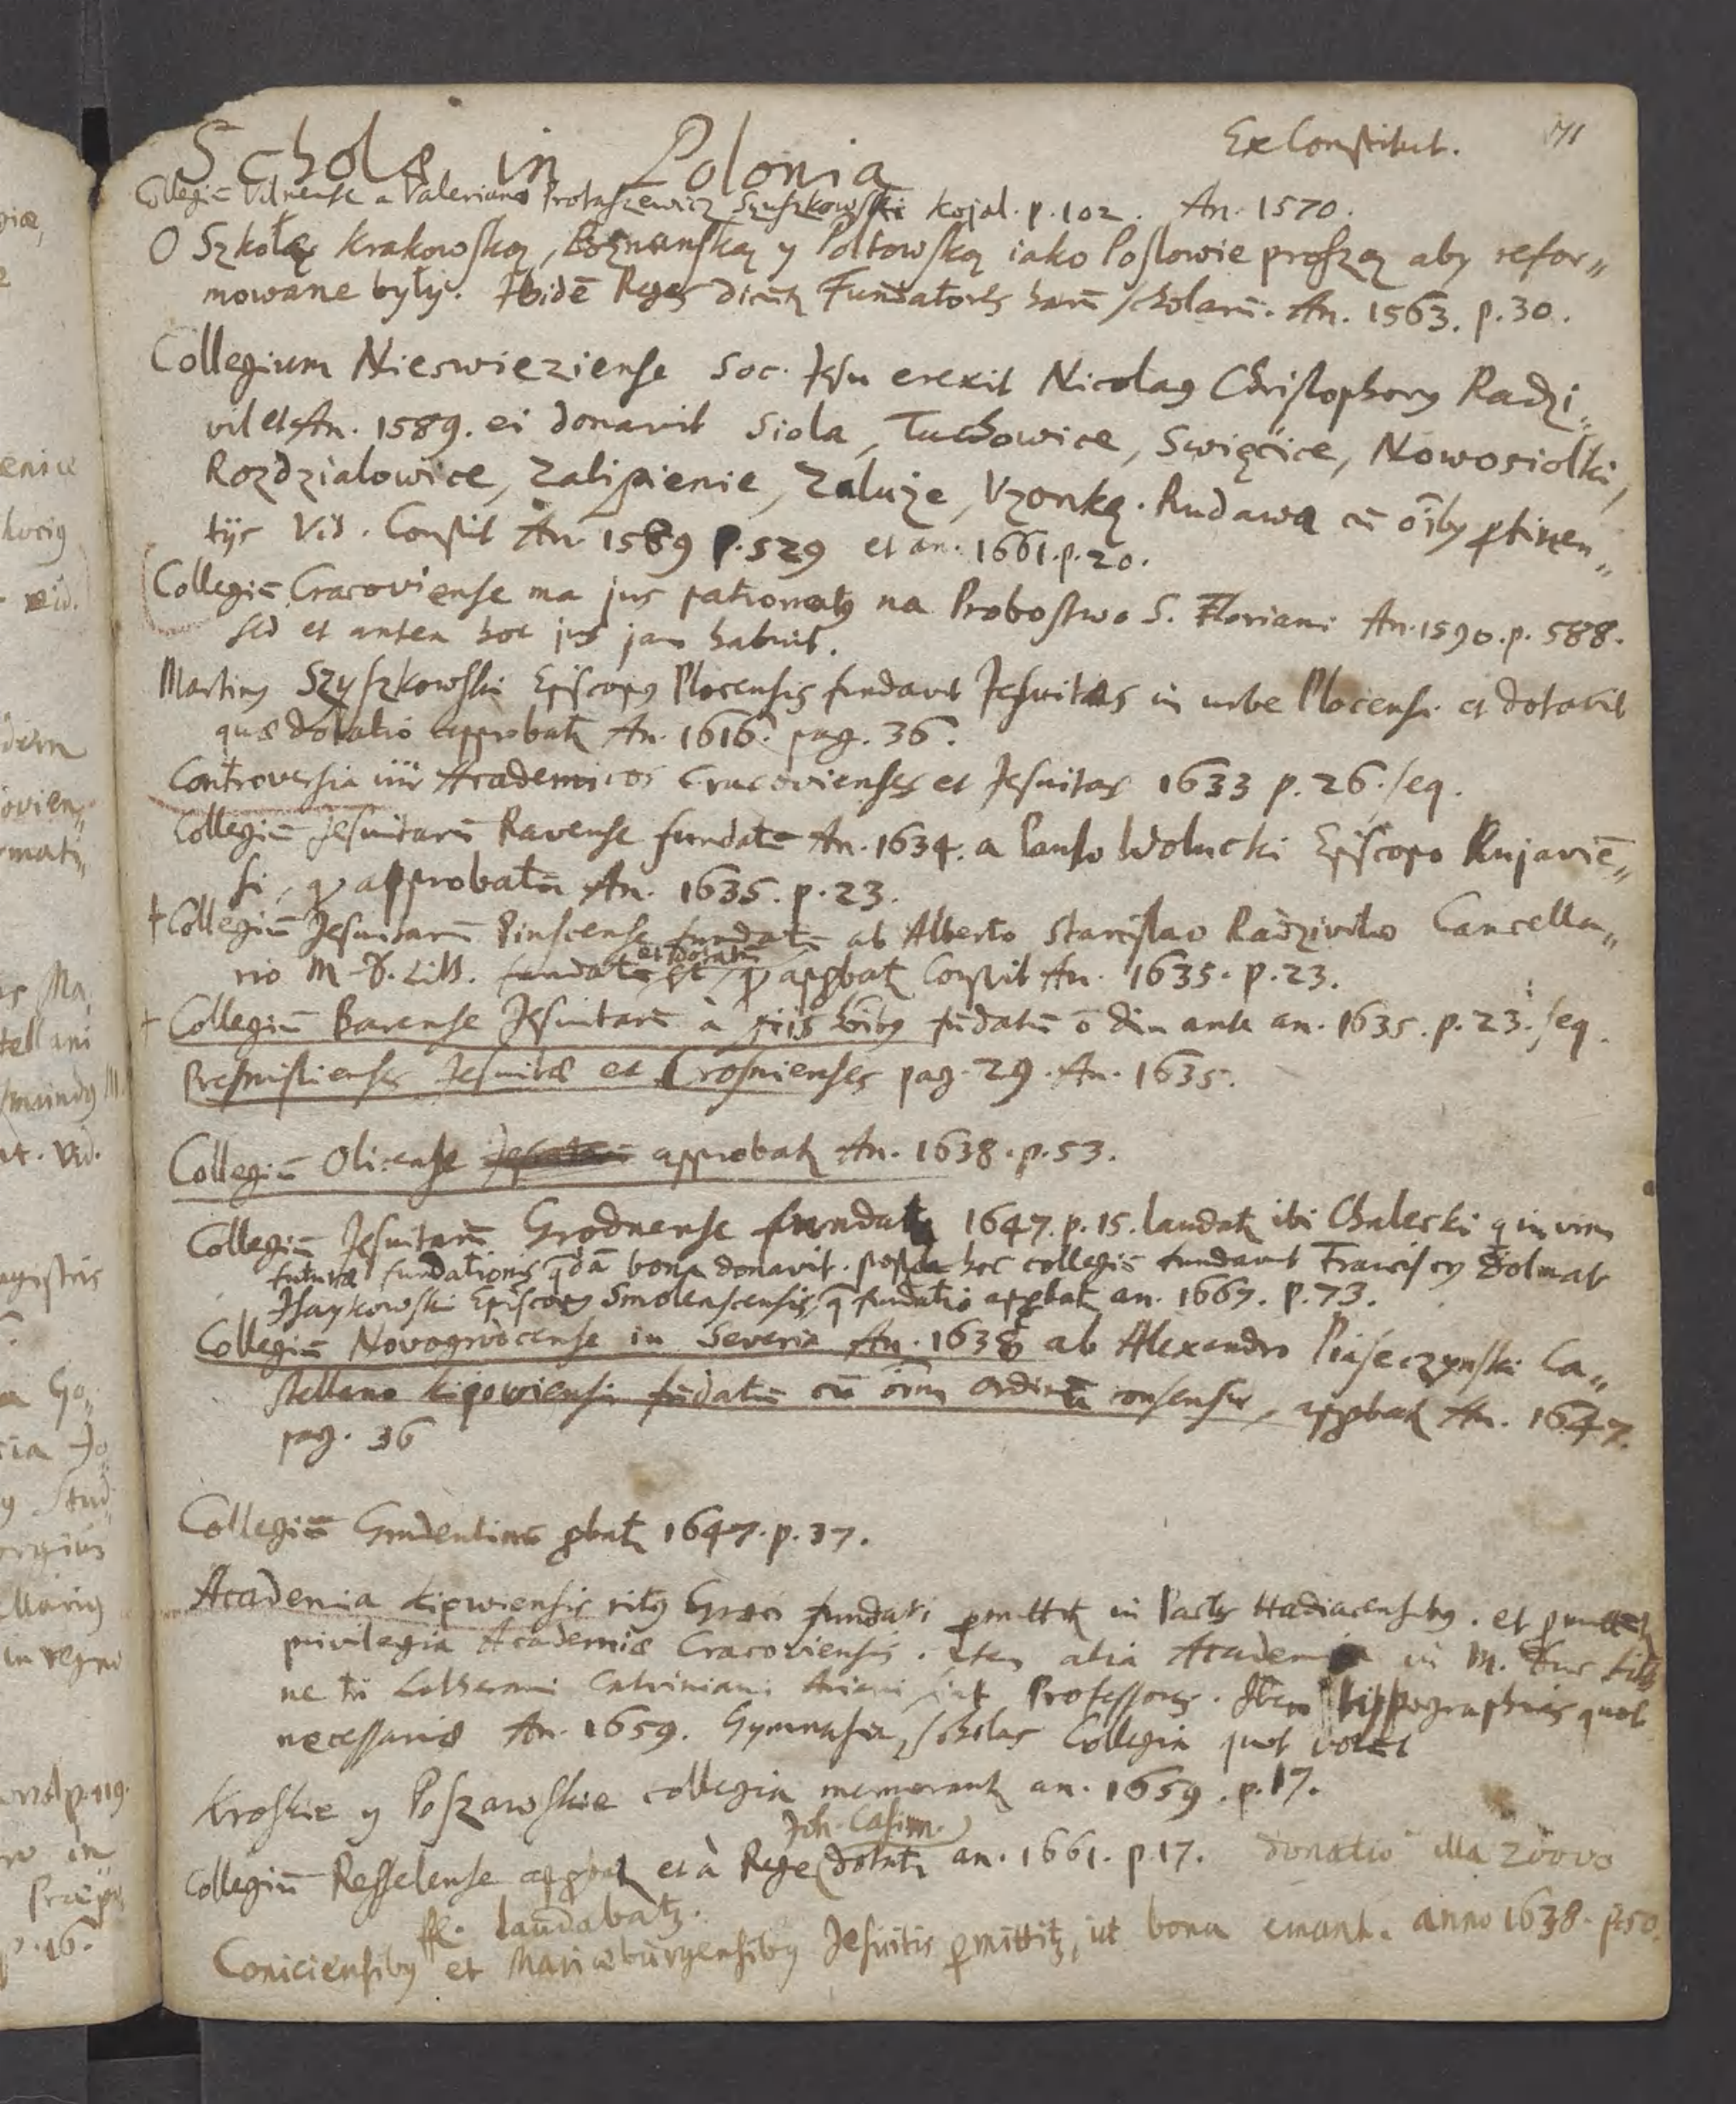 Scholæ in Polonia
Ex Constitut. 71
Collegiū Vilnense a Valeriano Protaszewicz Szuszkowski Kojal. p. 102. An. 1570.
O Szkołę Krakowską, Poznanską y Poltowską iako Posłowie proszą aby refor„
mowane były. Ibidē Reges dicunt Fundatores harū scholarū. An. 1563. p. 30.
Collegium Nieswieziense Soc. Jesu erexit Nicolaꝰ Christophorꝰ Radzi„
vil et An. 1589. ei donavit Siola, Tuchowice, Swięcice, Nowosiolki,
Rozdzialowice, Zalipienie, Zaluże, Uzonką. Rudawa cū oībꝰ ptinen„
tijs Vid. Constit An. 1589 p. 529 et an. 1661. p. 20.
Collegiū Cracoviense ma jus patronatꝰ na Probostwo S. Floriani An. 1590. p. 588.
sed et antea hoc jus jam habuit.
Martinꝰ Szyszkowski Episcopꝰ Plocensis fundavit Jesuitas in urbe Plocensi et dotavit
quæ dotatio approbatꝛ An. 1616. pag. 36.
Controversia inr Academicos Cracovienses et Jesuitas 1633 p. 26. seq.
Collegiū Jesuitarū Ravense fundatū An. 1634. a Paulo Wolucki Episcopo Kujaviē„
si, qd approbatū An. 1635. p. 23.
† Collegiū Jesuitarū Pinscense fundatū ab Alberto Stanislao Radzivilio Cancella„
rio M. D. Litt. fundatū et dotatū qd apꝓbatꝛ Constit An. 1635. p. 23.
† Collegiū Barense Jesuitarū à piis hōibꝰ fūdatū ō diu ante an. 1635. p. 23. seq.
Premislienses Jesuitæ et Crosnienses pag. 29. An. 1635.
Collegiū Olicense approbatꝛ An. 1638. p. 53.
Collegiū Jesuitarū Grodnense fundatꝛ 1647. p. 15. laudatꝛ ibi Chalecki q in vim
futuræ fundationis qdā bona donavit. postea hoc collegiū fundavit Franciscꝰ Dolmat
Isaykowski Episcopꝰ Smolenscensis, q fundatio apꝓbatꝛ an. 1667. p. 73.
Collegiū Novogrodcense in Severia An. 1638 ab Alexandro Piaseczynski Ca„
stellano Kijowiensi fūdatū cū oīm ordinū consensu, apꝓbatꝛ An. 1647.
pag. 36
Collegiū Grudentinū ꝓbatꝛ 1647. p. 37.
Academia Kijowiensis ritꝰ Græci fundari pmittitꝛ in Pactis Hadiacensibꝰ. et pmittūtꝛ
privilegia Academiæ Cracoviensis. Item alia Academia in M. Duc Litt
ne tn Lutherani Calviniani Ariani sint Professores. Item typographias quot
necessariæ An. 1659. Gymnasia, scholas Collegia quot volēt
Kroskie y Poszawskie collegia memorantꝛ an. 1659. p. 17.
Joh. Casim.
Collegiū Resselense apꝓbatꝛ et à Rege dotatꝛ an. 1661. p. 17. donatio illa 20000
fl. laudabatꝛ.
Coniciensibꝰ et Mariæburgensibꝰ Jesuitis pmittitꝛ, ut bona emant. anno 1638. p. 50.